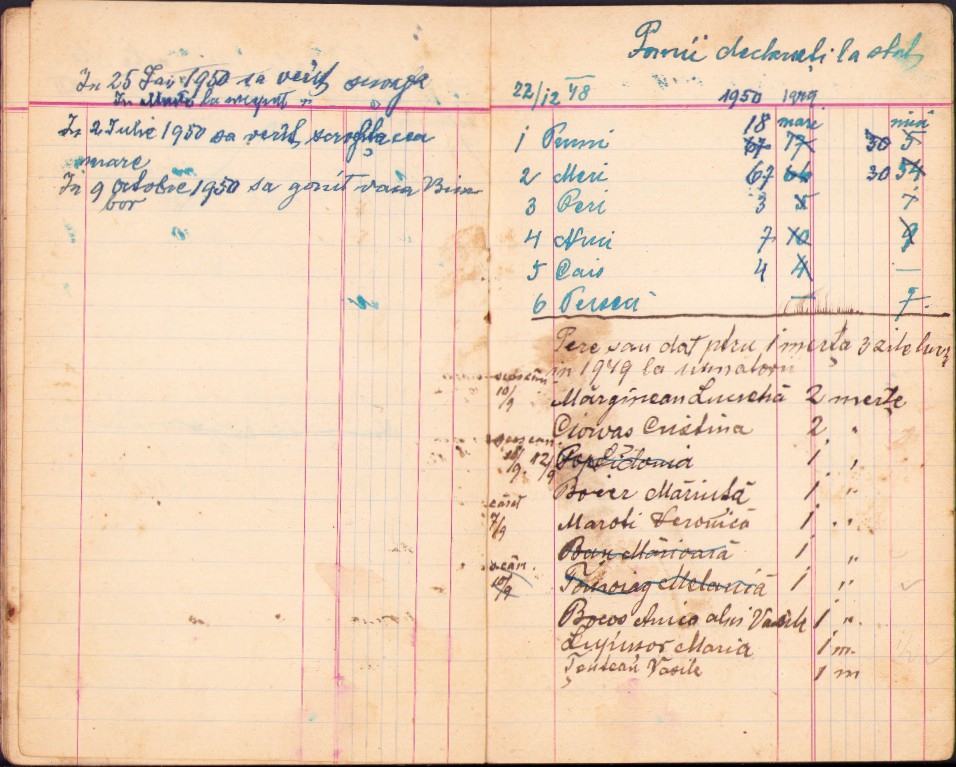 In 25 Iai 1950 sa verit scroafa
In
In 2 Iulie 1950 sa verit scrofița cea
mare
In 9 Octobre 1950 sa gonit vaca Bim-
bor
Pomii declarați la stat
22/12 48 1950 1949
18 mari mici
1 Pruni 67 77 30 5
2 Meri 67 64 30 54
3 Peri 3 5 7
4 Nuci 7 10 9
5 Cais 4 4 —
6 Perseci — 7
Pere sau dat ptru 1 merța 3 zile lucru
in 1949 la urmatorii
10/9 Mărginean Lucreția 2 merțe
Ciorvas Cristina 2 "
12/9 Pop Sidonia 1 "
Boier Măriuță 1 "
7/9 Maroti Veronică 1 "
Ban Mărioară 1 "
10/9 Melaniă 1 "
Bocos Anica alui Vasile 1 "
Maria 1 m.
Vasile 1 m